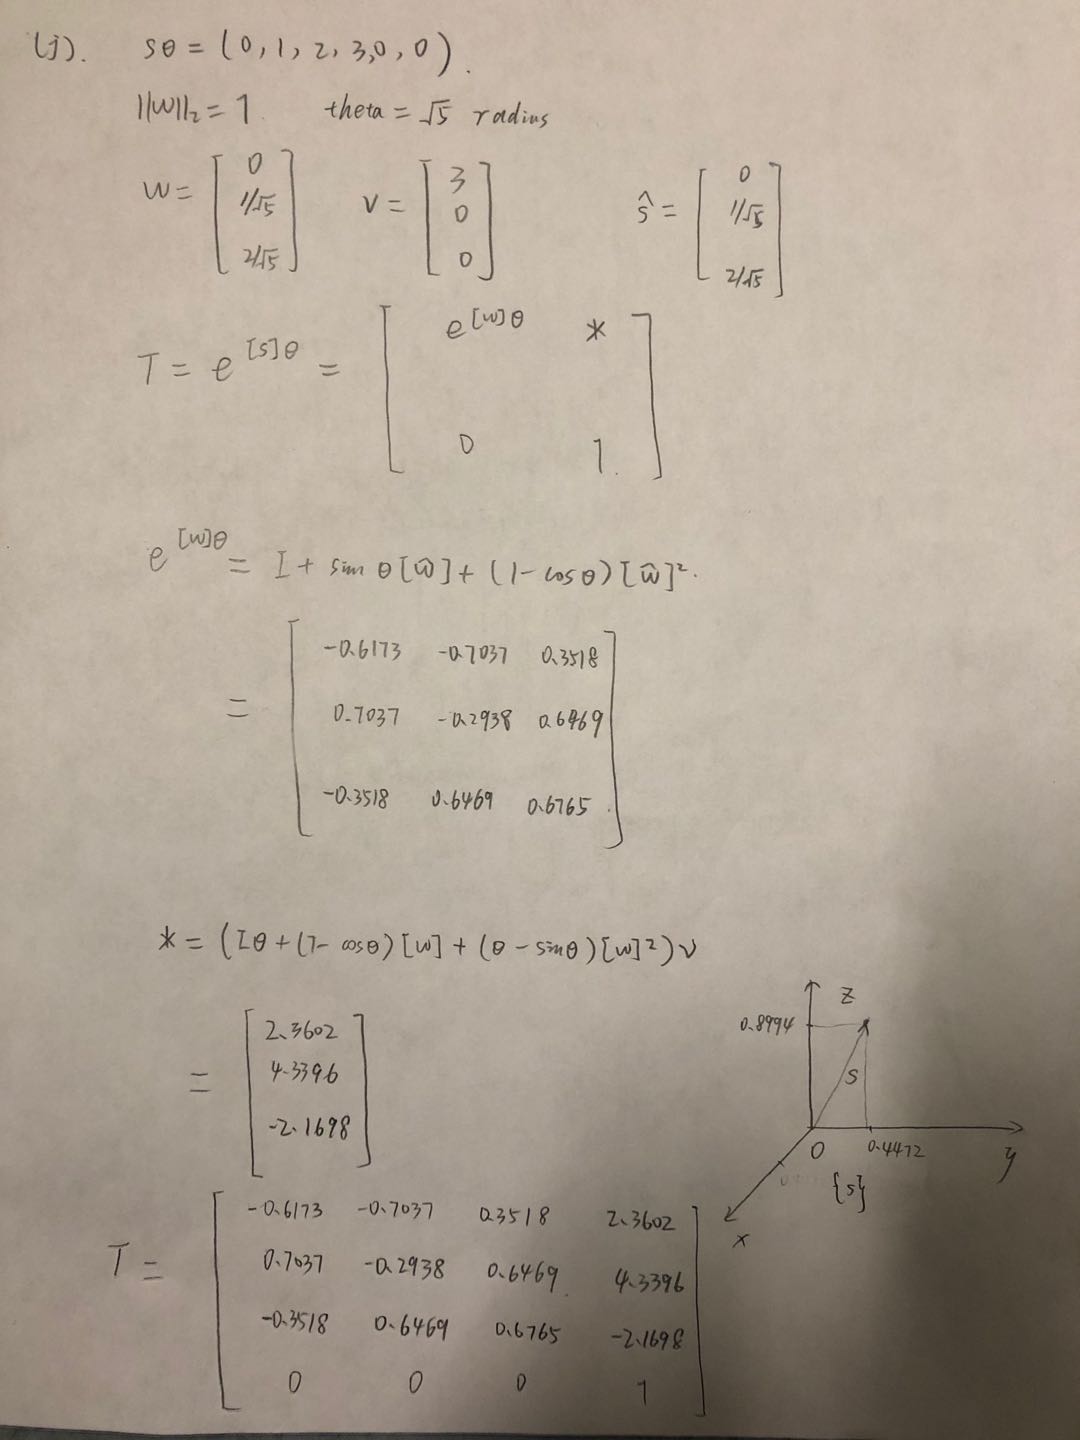 (j). sθ = (0, 1, 2, 3, 0, 0).
||W||₂ = 1 theta = √5 radius
w = [0 1/√5 2/√5] v = [3 0 0] ŝ = [0 1/√5 2/√5]
T = e^[s]θ = [e^[w]θ *
0 1.]
e^[w]θ = I + sin θ[ŵ] + (1-cosθ)[ŵ]².
= [-0.6173 -0.7037 0.3518
0.7037 -0.2938 0.6469
-0.3518 0.6469 0.6765]
* = (Iθ + (1- cosθ)[w] + (θ - sinθ)[w]²)v
= [2.3602
4.3396
-2.1698]
z
0.8994
S
0 0.4472 y
{s}
x
T = [-0.6173 -0.7037 0.3518 2.3602
0.7037 -0.2938 0.6469 4.3396
-0.3518 0.6469 0.6765 -2.1698
0 0 0 1]